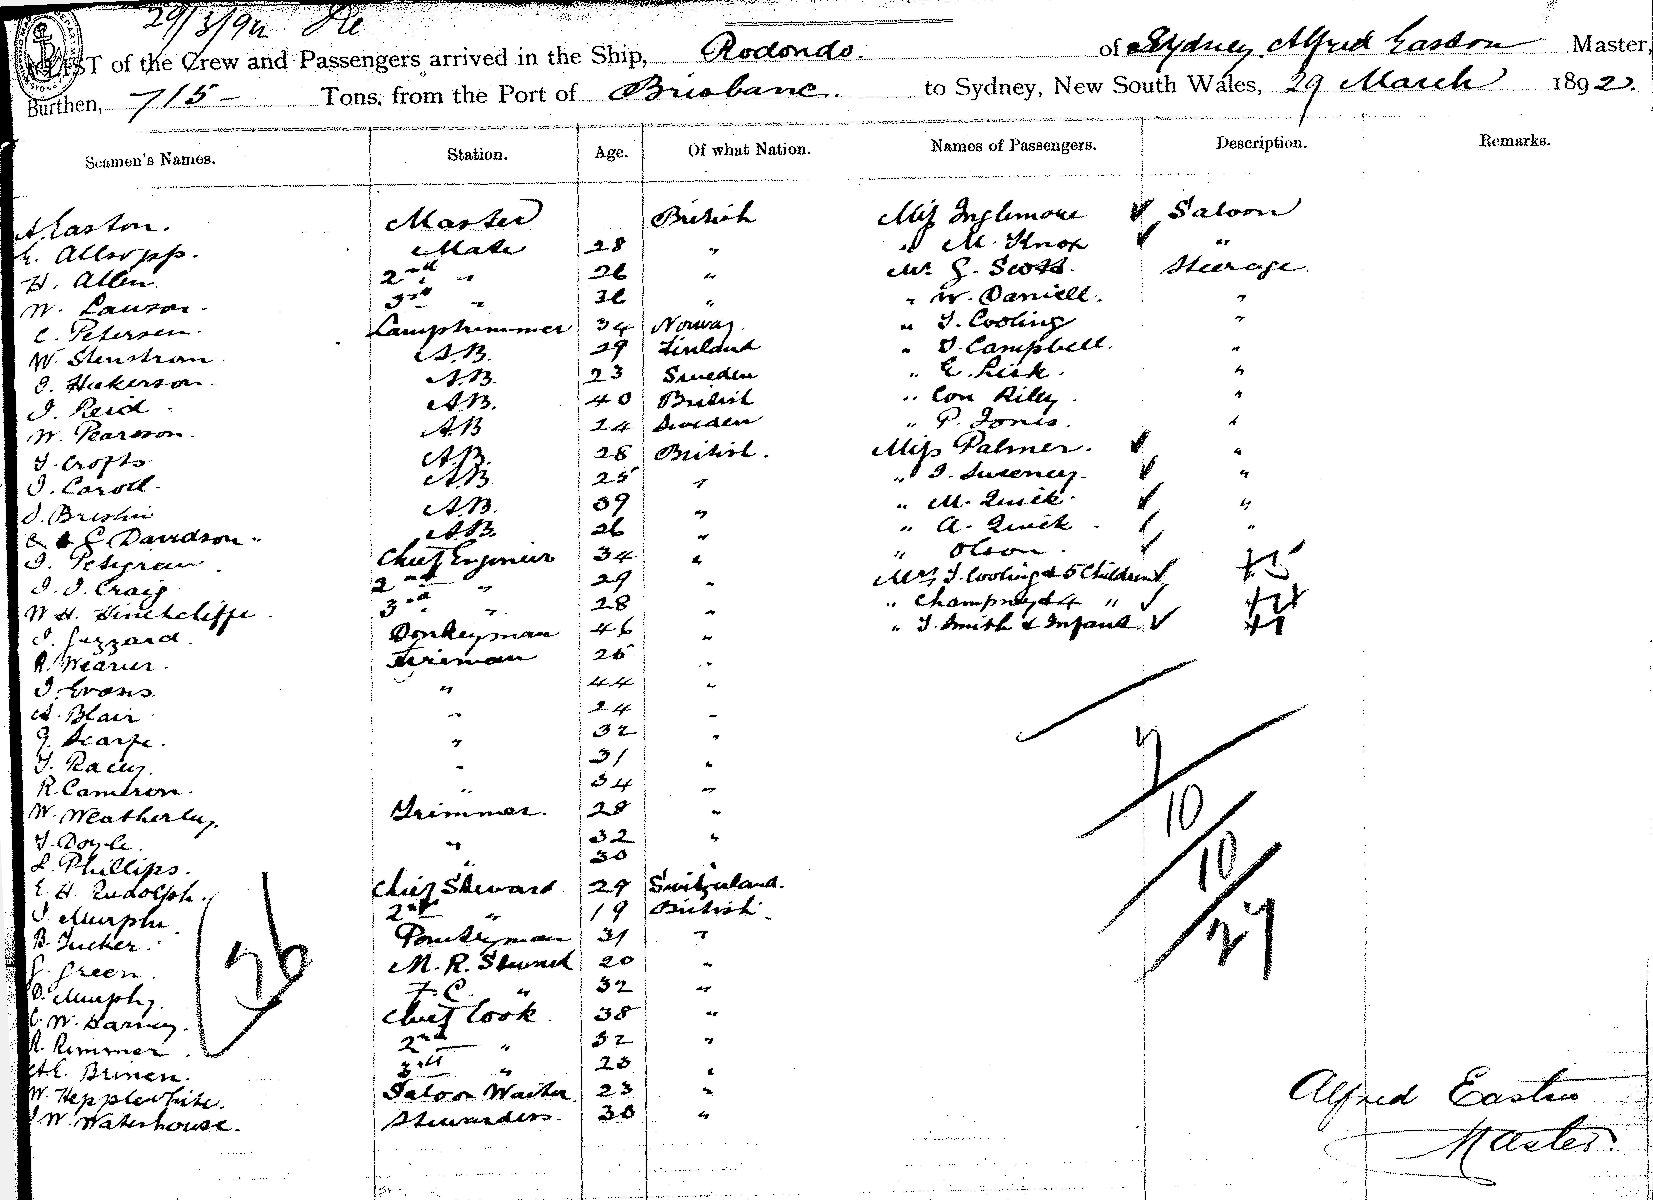 29/3/92
LIST of the Crew and Passengers arrived in the Ship, Rodondo. of Sydney, Alfred Easton Master,
Burthen, 715 - Tons, from the Port of Brisbane. to Sydney, New South Wales, 29 March 1892.
Seamen's Names. Station. Age. Of what Nation. Names of Passengers. Description. Remarks.
A Easton. Master British Miss Inglemore ✓ Saloon
E. Allsopp. Mate 28 " " M. Knox ✓ "
H. Allen. 2nd " 26 " Mr. G. Scott. Steerage
W. Lawson. 3rd " " " W. Daniell. "
C. Petersen. Lamptrimmer 34 Norway " T. Cooling "
W. Stenstrom A.B. 29 Finland " D. Campbell. "
A.B. 23 Sweden " E. "
J. Reid. A.B. 40 British " Con Riley. "
W. Pearson. A.B 24 Sweden " P. Jones. "
T. Crofts A.B. 28 British. Miss Palmer. ✓ "
J. Caroll. A.B. 25 " " J. Sweeney. ✓ "
A.B. 39 " " M. Quick. ✓ "
C. Davidson. A.B. 26 " " A. Quick ✓ "
Chief Engineer 34 " " Olson. ✓
J. J. Craig 2nd " 29 " Mrs J. Cooling & 5 Children ✓
W H. Hinchcliffe 3rd " 28 " " Champney & 4 " ✓
J. Guzzard. Donkeyman 46 " " T. Smith & Infant ✓
R. Weaver. Fireman 26 "
J. Evans " 44 "
A. Blair " 24 "
G. Scarfe. " 32 "
T. Racey. " 31 "
R. Cameron. " 34 "
W. Weatherley. Trimmer. 28 "
T. Doyle. " 32 "
L. Phillips. " 30 "
E. H. Rudolph. Chief Steward 29 Switzerland.
J. Murphy. 2nd " 19 British.
B. Tucker. Pantryman 31 "
G. Green. M. R. Steward 20 "
D. Murphy. F. C. " 32 "
C. W. Harvey. Chief Cook. 38 "
R. Rimmer. 2nd " 32 "
A E. Brinen. 3rd " 23 "
W. Hepplewhite. Saloon Waiter 23 "
W. Waterhouse. Stewardess. 30 "
36
10
10
27
Alfred Easton
Master.